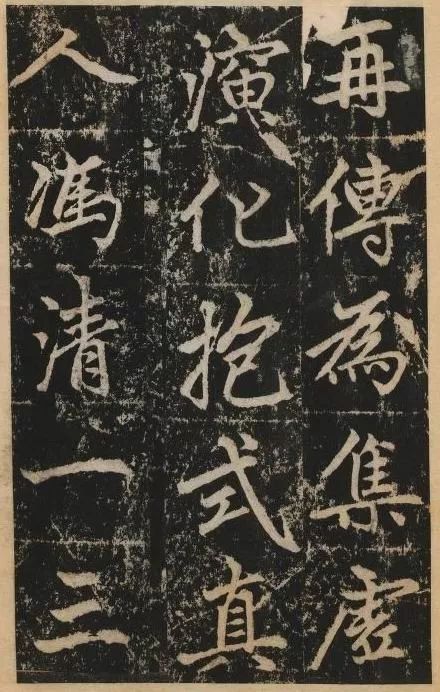 海傳為集虛
演化抱式真
人馮清一三